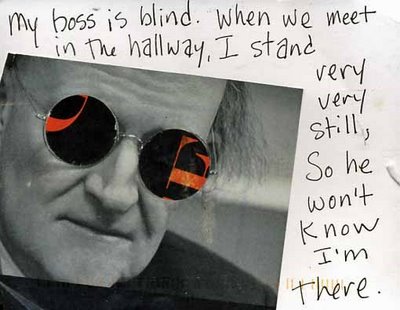 my boss is blind. When we meet
in the hallway, I stand
very
very
still,
So he
won't
know
I'm
there.